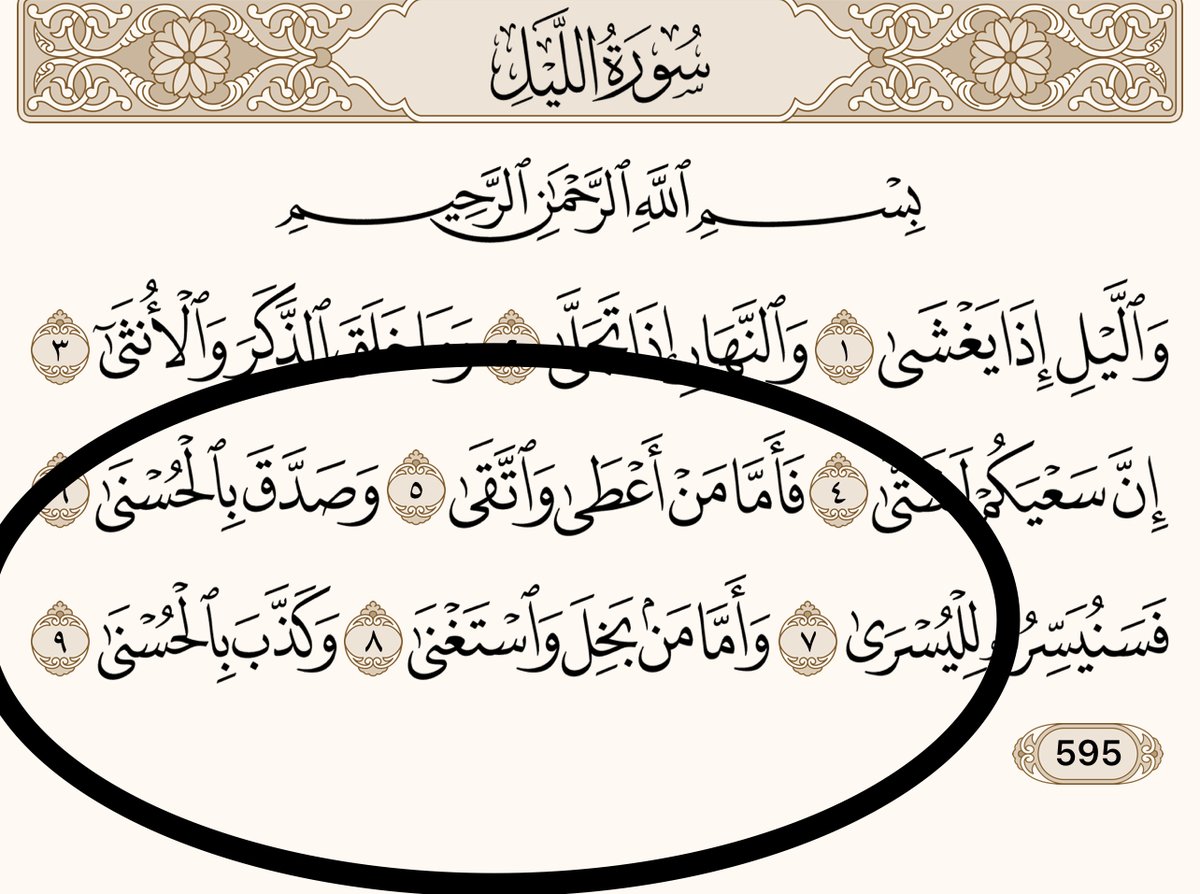 سُورَةُ اللَّيْلِ
بِسْمِ ٱللَّهِ ٱلرَّحْمَٰنِ ٱلرَّحِيمِ
وَٱلَّيْلِ إِذَا يَغْشَىٰ ١ وَٱلنَّهَارِ إِذَا تَجَلَّىٰ ٢ وَمَا خَلَقَ ٱلذَّكَرَ وَٱلْأُنثَىٰٓ ٣
إِنَّ سَعْيَكُمْ لَشَتَّىٰ ٤ فَأَمَّا مَنْ أَعْطَىٰ وَٱتَّقَىٰ ٥ وَصَدَّقَ بِٱلْحُسْنَىٰ ٦
فَسَنُيَسِّرُهُۥ لِلْيُسْرَىٰ ٧ وَأَمَّا مَنۢ بَخِلَ وَٱسْتَغْنَىٰ ٨ وَكَذَّبَ بِٱلْحُسْنَىٰ ٩
595